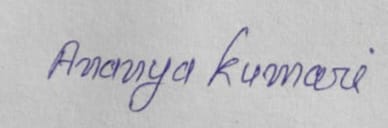 Ananya Kumari